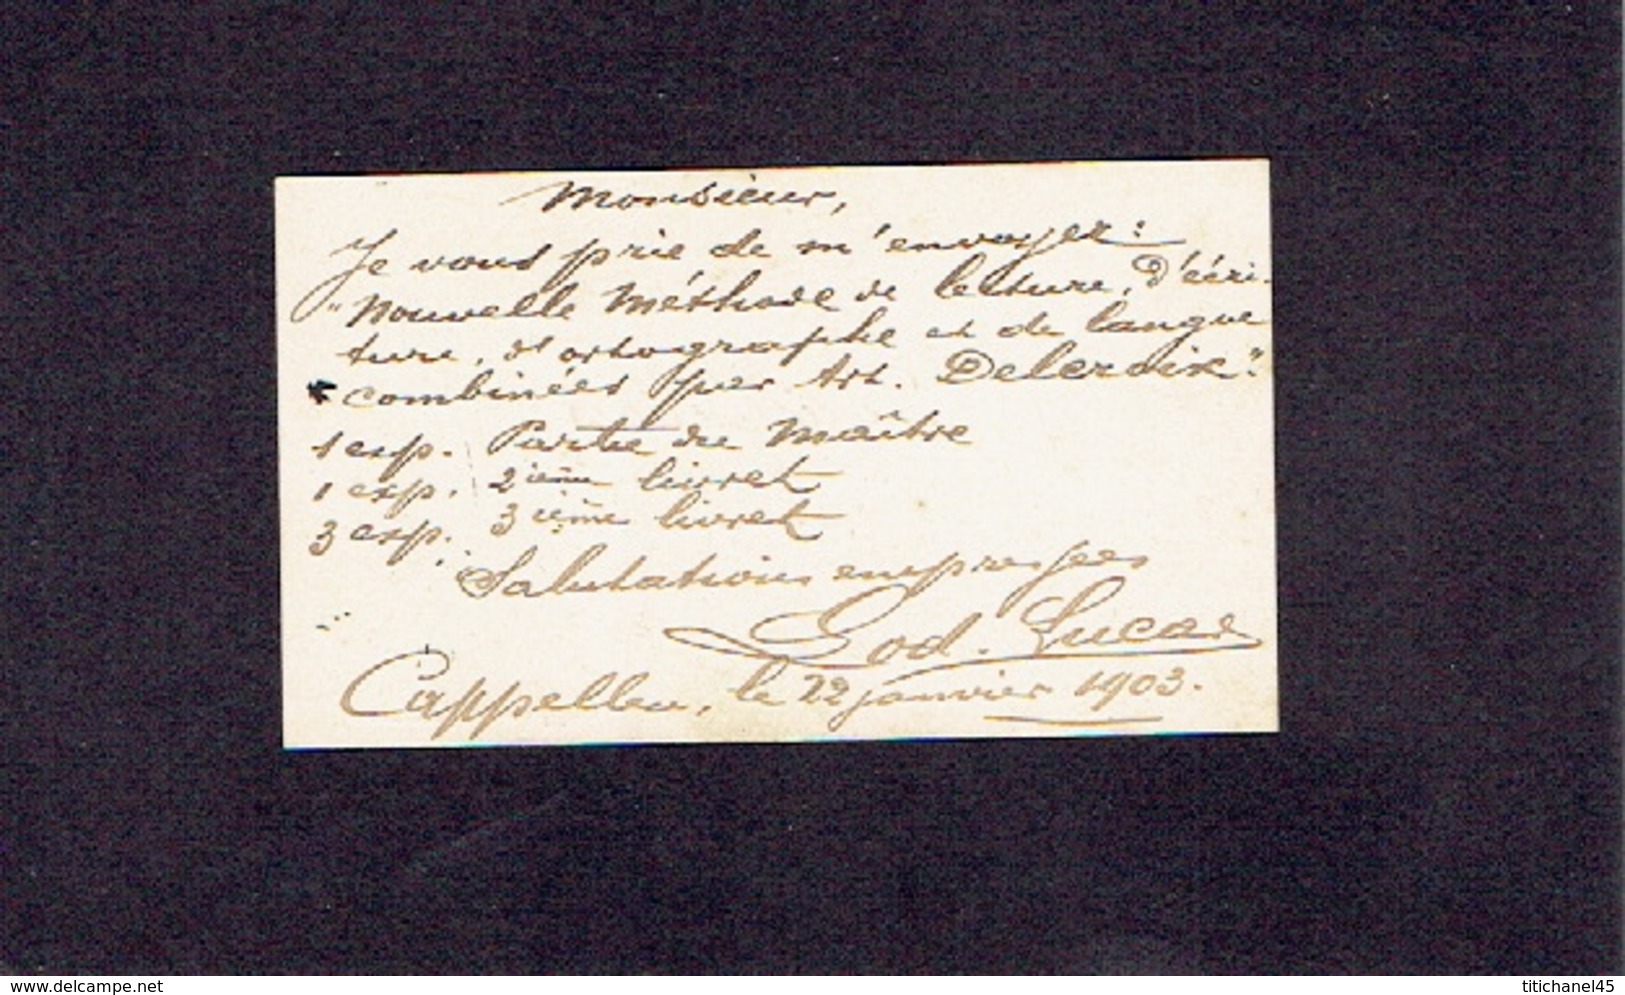 Monsieur,
Je vous prie de m'envoyer:
"Nouvelle Méthode de lecture, d'écri-
ture, d'ortographe et de langue
combinées par Art. Delcroix"
1 exp. Partie du Maître
1 exp. 2ième livret
3 exp. 3ième livret
Salutations empressées
God. Lucas
Cappellen, le 22 janvier 1903.
www.delcampe.net
titichanel45